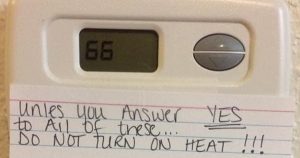 66
Unles You Answer YES
to All of these...
DO NOT TURN ON HEAT !!!